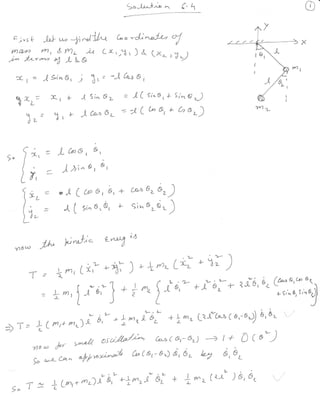 Solution 6.4
1
First let us find the coordinates of
mass m₁ & m₂ is (x₁,y₁) & (x₂,y₂)
in terms of l & θ
x₁ = l sinθ₁ ; y₁ = -l cosθ₁
x₂ = x₁ + l sinθ₂ = l(sinθ₁ + sinθ₂)
y₂ = y₁ + l cosθ₂ = -l(cosθ₁ + cosθ₂)
y
x
θ₁
l
m₁
l
θ₂
m₂
So
ẋ₁ = l cosθ₁ θ̇₁
ẏ₁ = l sinθ₁ θ̇₁
ẋ₂ = l(cosθ₁ θ̇₁ + cosθ₂ θ̇₂)
ẏ₂ = l(sinθ₁ θ̇₁ + sinθ₂ θ̇₂)
now the kinetic Energy is
T = ½ m₁(ẋ₁² + ẏ₁²) + ½ m₂(ẋ₂² + ẏ₂²)
= ½ m₁{l²θ̇₁²} + ½ m₂{l²θ̇₁² + l²θ̇₂² + 2l²θ̇₁θ̇₂(cosθ₁ cosθ₂ + sinθ₁ sinθ₂)}
⇒ T = ½(m₁+m₂)l²θ̇₁² + ½ m₂l²θ̇₂² + ½ m₂(2l² cos(θ₁-θ₂))θ̇₁θ̇₂
now for small oscillation cos(θ₁-θ₂) → 1 + O(θ²)
So we can approximate cos(θ₁-θ₂)θ̇₁θ̇₂ by θ̇₁θ̇₂
So T ≃ ½(m₁+m₂)l²θ̇₁² + ½ m₂l²θ̇₂² + ½ m₂(2l²)θ̇₁θ̇₂